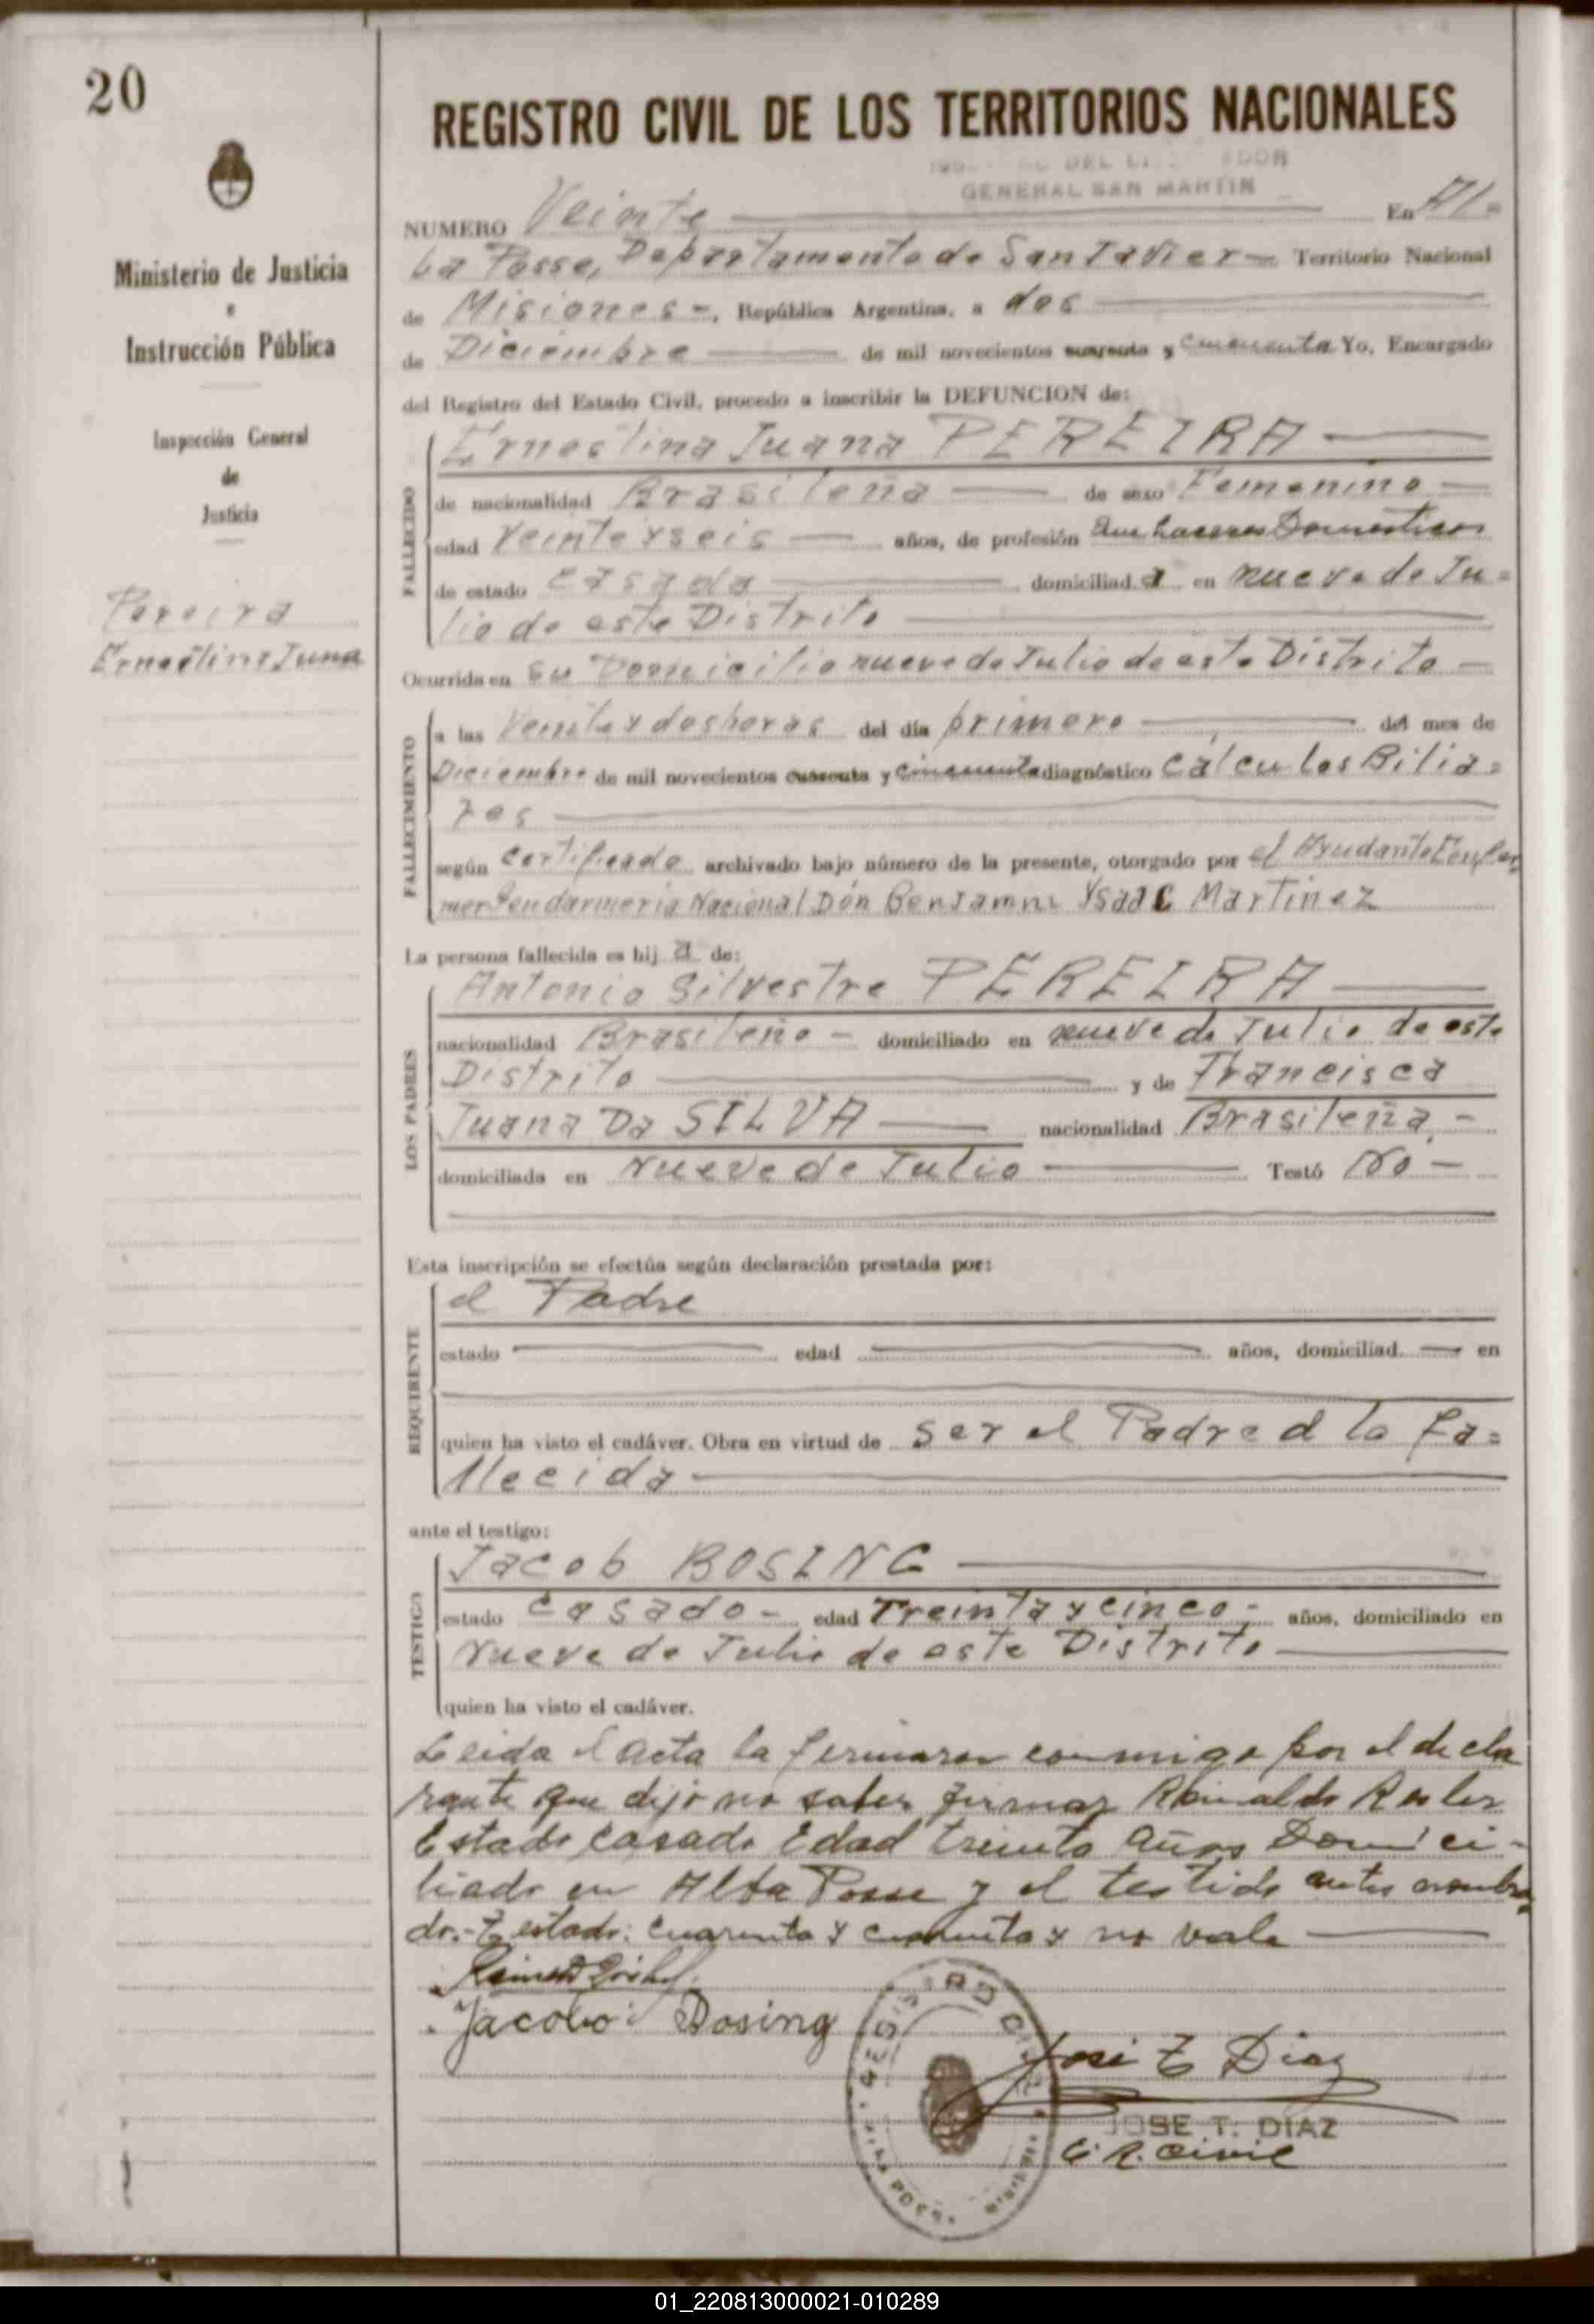 20
REGISTRO CIVIL DE LOS TERRITORIOS NACIONALES
DEL
GENERAL SAN MARTIN
NUMERO Veinte En Al-
ba Posse, Departamento de San Javier Territorio Nacional
de Misiones, República Argentina, a dos
de Diciembre de mil novecientos cuarenta y cincuenta Yo, Encargado
del Registro del Estado Civil, procedo a inscribir la DEFUNCION de:
Ministerio de Justicia
e
Instrucción Pública
Inspección General
de
Justicia
Pereira
Ernestina Juna
FALLECIDO
Ernestina Juana PEREIRA
de nacionalidad Brasileña de sexo Femenino
edad Veinteyseis años, de profesión Que haceres Domesticos
de estado Casada domiciliad a en nueve de Ju=
lio de este Distrito
Ocurrida en su Domicilio nueve de Julio de este Distrito
FALLECIMIENTO
a las Veinte y dos horas del día primero del mes de
Diciembre de mil novecientos cuarenta y cincuenta diagnóstico Cálculos Bilia=
res
según Certificado archivado bajo número de la presente, otorgado por el Ayudante Enfer-
mer Gendarmeria Nacional Dón Benjamin Ysaac Martinez
La persona fallecida es hij a de:
LOS PADRES
Antonio Silvestre PEREIRA
nacionalidad Brasileño - domiciliado en nueve de Julio de este
Distrito y de Francisca
Juana Da SILVA nacionalidad Brasileña.-
domiciliada en Nueve de Julio Testó No -
Esta inscripción se efectúa según declaración prestada por:
REQUIRENTE
el Padre
estado edad años, domiciliad en
quien ha visto el cadáver. Obra en virtud de ser el Padre d la fa=
llecida
ante el testigo:
TESTIGO
Jacob BOSING
estado Casado - edad Treinta y cinco - años, domiciliado en
Nueve de Julio de este Distrito
quien ha visto el cadáver.
Leida el acta la firmaron conmigo por el decla
rante que dijo no saber firmar
Estado Casado Edad treinta años Domici-
liado en Alba Posse y el testido antes nombra
do.- T estado: cuarenta y cincuenta y no vale
Jacobo Bosing
REGISTRO CIVIL
ALBA POSSE
MISIONES
José T Diaz
JOSE T. DIAZ
E. R. Civil
01_220813000021-010289